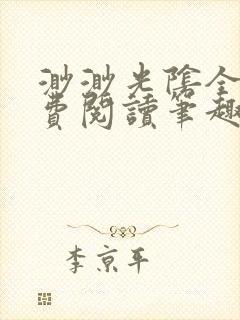 渺渺光陰全
費閱讀筆趣
李京平